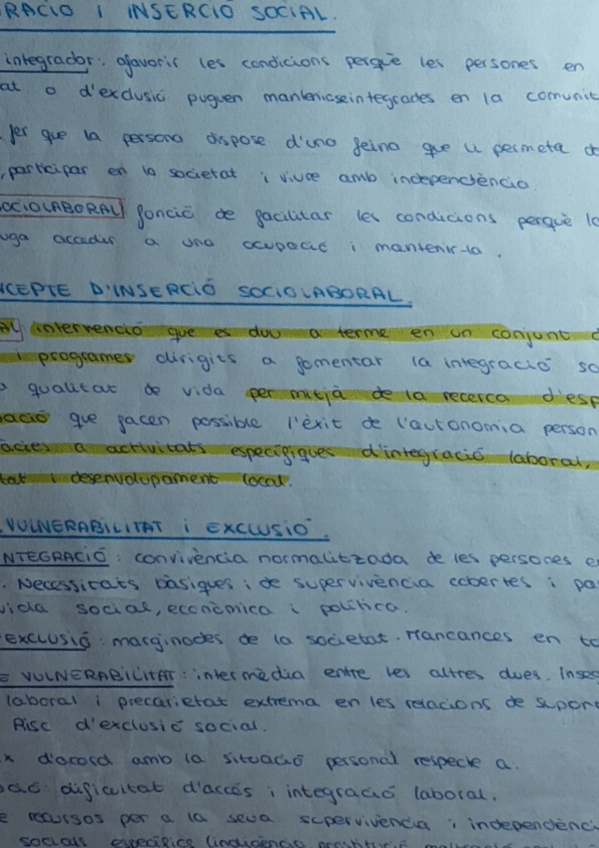 RACIÓ I INSERCIÓ SOCIAL.
integrador: afavorir les condicions perquè les persones en
at o d'exclusió puguen mantenirse integrades en la comunit
fer que la persona dispose d'una feina que li permeta d
, participar en la societat i viure amb independència.
OCIOLABORAL funció de facilitar les condicions perquè la
uga accedir a una ocupació i mantenir-la.
NCEPTE D'INSERCIÓ SOCIOLABORAL.
AL: intervenció que es duu a terme en un conjunt d
i programes dirigits a fomentar la integració so
a qualitat de vida per mitjà de la recerca d'esp
ació que facen possible l'èxit de l'autonomia person
àcies a activitats específiques d'integració laboral,
tat i desenvolupament local.
VULNERABILITAT i EXCLUSIÓ.
NTEGRACIÓ: convivència normalitzada de les persones e
. Necessitats bàsiques i de supervivència cobertes i pa
vida social, econòmica i política.
'EXCLUSIÓ: marginades de la societat. Mancances en to
E VULNERABILITAT: intermèdia entre les altres dues. Inseg
laboral i precarietat extrema en les relacions de suport
Risc d'exclusió social.
x d'acord amb la situació personal respecte a:
ació: dificultat d'accés i integració laboral.
e recursos per a la seua supervivència i independènci
socials específics (indigència, prostitució,